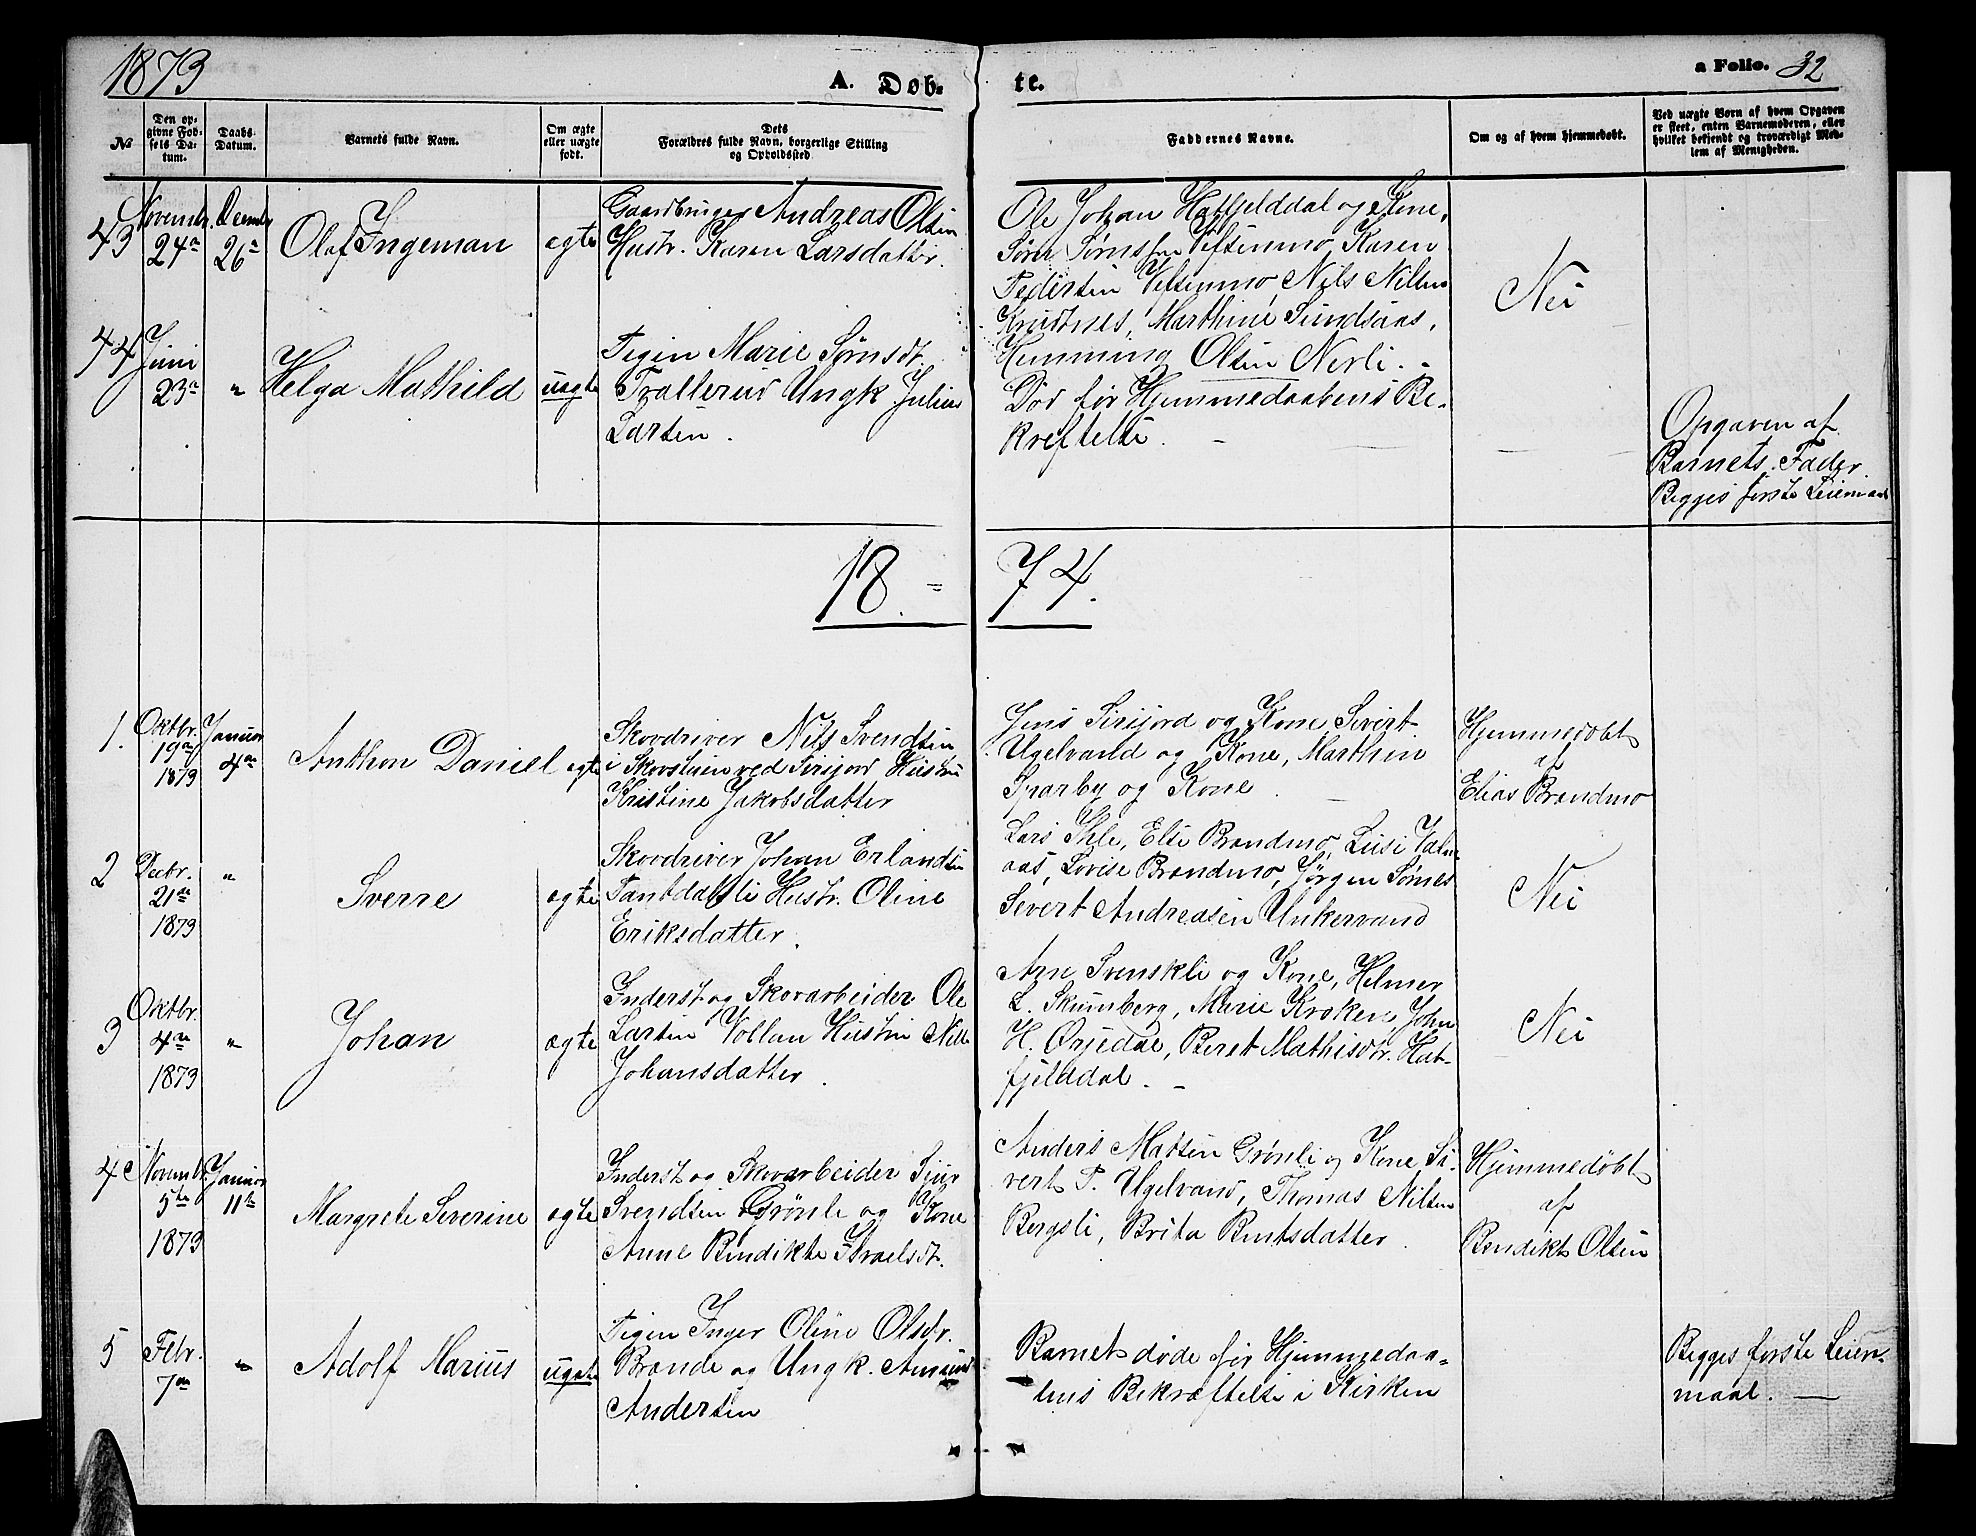 1873
A. Døb-
te.
a Folio. 32
No
Den op-
givne Fød-
sels Da-
tum.
Daabs
Datum.
Barnets fulde Navn.
Om ægte
eller uægte
født.
Dets
Forældres fulde Navn, borgerlige Stilling
og Opholdssted
Faddernes Navne.
Om og af hvem hjemmedøbt.
Ved uægte Børn af hvem Opgaven
er skeet, enten Barnemoderen, eller
hvilket bekjendt og troværdigt Med-
lem af Menigheden.
43
Novembr
24de
Decembr
26de
Olaf Ingeman
ægte
Gaardbruger Andreas Olsen
Hustr. Karen Larsdatter.
Ole Johan Hatfjelddal og Kone,
Vefsenmo, Karen
Pedersen Vefsenmo, Nils Nilsen
Knutnes, Marthine Sundsaas,
Hemming Olsen Nerli.
Nei
44
Juni
23de
"
Helga Mathild
uægte
Pigen Marie Sørnsdt.
Trallerud Ungk Julius
Larsen.
Død før Hjemmedaabens Be-
kreftelse.
Opgaven af
Barnets Fader
Begges første Leiermaal
18 74.
1.
Oktbr.
19de
1873
Januar
4de
Anthon Daniel
ægte
Skovdriver Nils Svendsen
i Skovstuen ved Sirijord Hustru
Kristine Jakobsdatter
Jens Sirijord og Kone, Sivert
Ugelvand og Kone, Marthin
Sparby og Kone.
Hjemmedøbt
af
Elias Brandmo
2
Decbr.
21de
1873
"
Sverre
ægte
Skovdriver Johan Erlandsen
Hustr. Oline
Eriksdatter.
Lars Thle, Else Brandmo, Lusi
Lovise Brandmo, Jørgen Sørnes
Severt Andreasen Unkervand
Nei
3
Oktbr.
4de
1873
"
Johan
ægte
Inderst og Skovarbeider Ole
Larsen Vollan Hustru Nille
Johansdatter.
Arn Svenskli og Kone, Helmer
L. Skumberg, Marie Kroken, John
H. Ørjedal, Beret Mathisdr. Hat-
fjelddal.
Nei
4
Novembr.
5te
1873
Januar
11te
Margrete Severine
ægte
Inderst og Skovarbeider Sjur
Svendsen Grønli og Kone
Anne Bendikte Israelsdt.
Anders Matsen Grønli og Kone Si-
vert P. Ugelvand, Thomas Nilsen
Bergsli, Brita Bentsdatter.
Hjemmedøbt
af
Bendikt Olsen
5
Febr.
7de
"
Adolf Marius
uægte
Pigen Inger Oline Olsdr.
Brende og Ungk. Amund
Andersen
Barnet døde før Hjemmedaa-
bens Bekræftelse i Kirken
Begges første Leier-
maal.